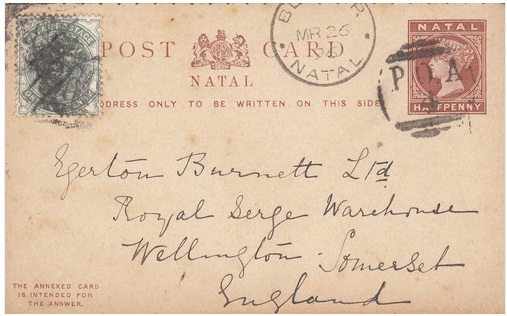 POST CARD
NATAL
ADDRESS ONLY TO BE WRITTEN ON THIS SIDE
MR 26
NATAL
NATAL
HALFPENNY
Egerton Burnett Ltd
Royal Serge Warehouse
Wellington Somerset
England
THE ANNEXED CARD
IS INTENDED FOR
THE ANSWER.